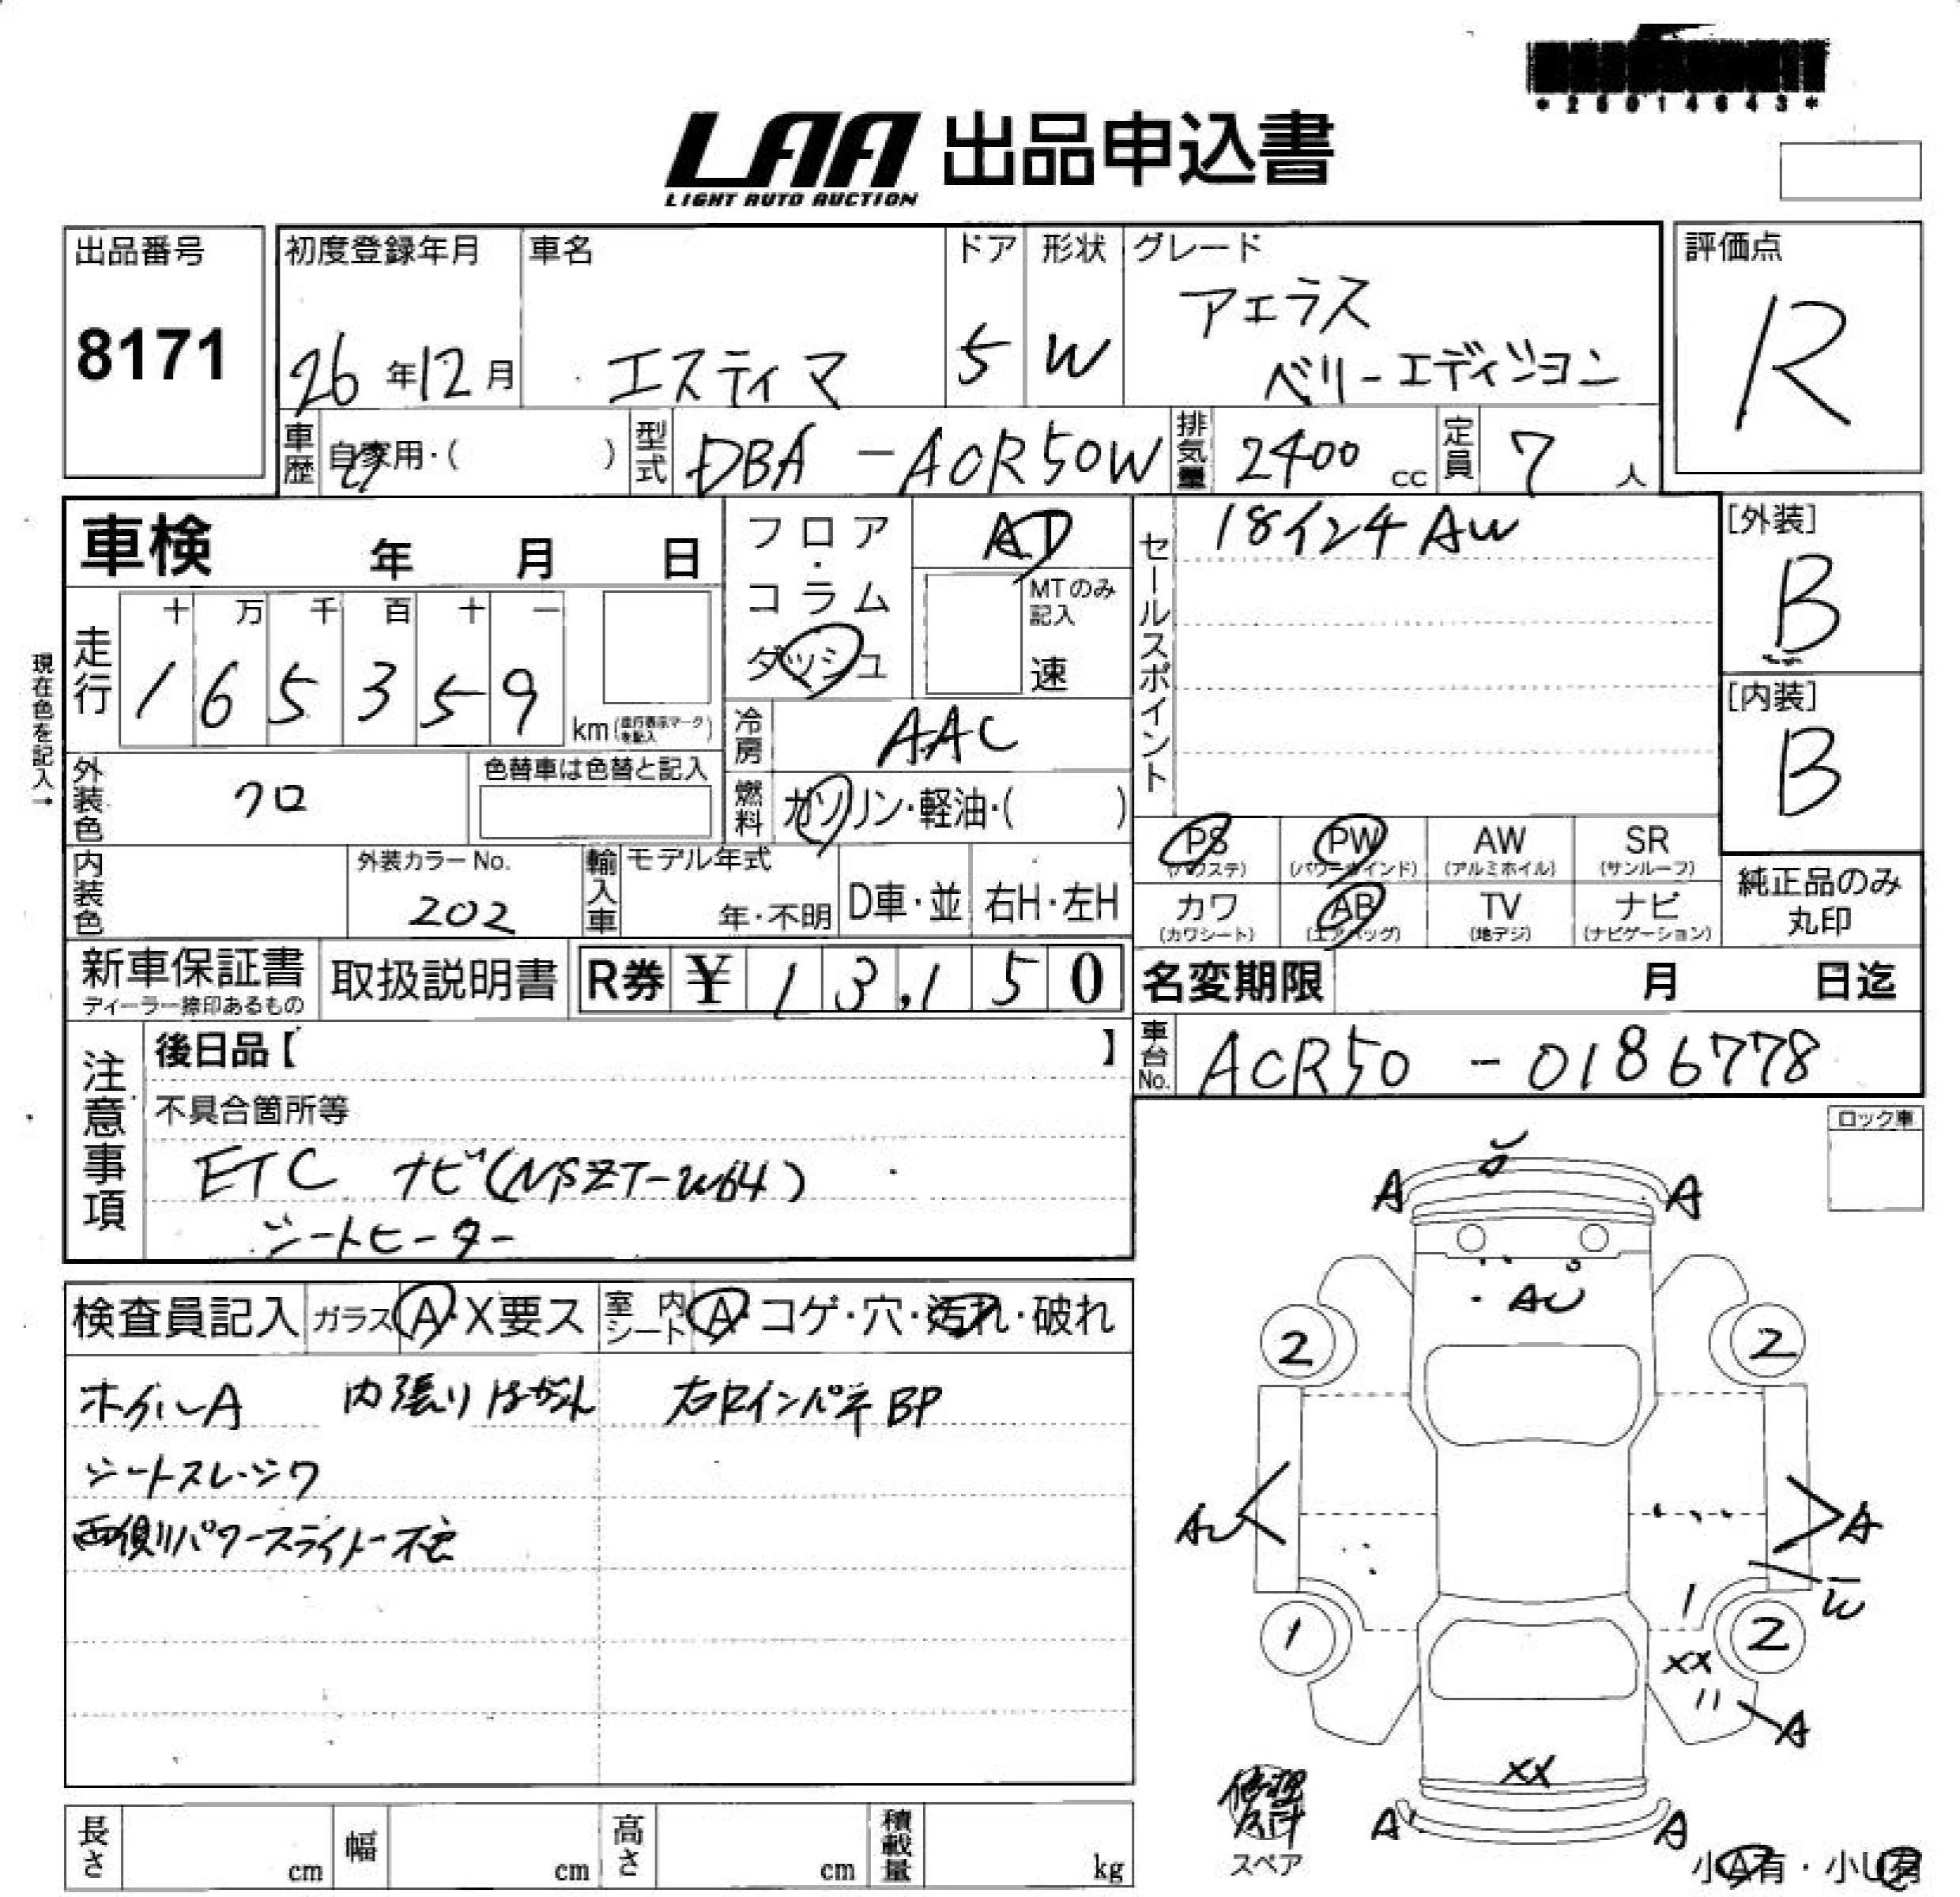 *25014643*
LAA 出品申込書
LIGHT AUTO AUCTION
出品番号
8171
初度登録年月
26年12月
車名
エスティマ
ドア
5
形状
W
グレード
アエラス
ベリーエディション
評価点
R
車歴 自家用・( )
型式 DBA-ACR50W
排気量 2400 cc
定員 7 人
車検 年 月 日
現在色を記入→
走行
十 万 千 百 十 一
1 6 5 3 5 9
km (走行表示マークを記入)
フロア・コラム
ダッシュ
AT
MTのみ記入
速
冷房 AAC
燃料 ガソリン・軽油・( )
セールスポイント
18インチ AW
[外装]
B
[内装]
B
外装色 クロ
色替車は色替と記入
内装色
外装カラーNo.
202
輸入車
モデル年式
年・不明
D車・並
右H・左H
PS (パワステ)
PW (パワーウインド)
AW (アルミホイル)
SR (サンルーフ)
カワ (カワシート)
AB (エアバッグ)
TV (地デジ)
ナビ (ナビゲーション)
純正品のみ
丸印
新車保証書
ディーラー捺印あるもの
取扱説明書
R券 ¥ 13,150
名変期限 月 日迄
車台No. ACR50-0186778
注意事項
後日品【 】
不具合箇所等
ETC ナビ(NSZT-W64)
シートヒーター
検査員記入
ガラス A・X要ス
室内シート A・コゲ・穴・汚れ・破れ
ホイルA 内張りはがれ 右RインパネBP
シートスレ・シワ
両側パワースライドー不良
ロック車
A
A
AU
2
2
AU
A
W
1
2
XX
A
XX
A
A
スペア
小A有・小U有
長さ cm
幅 cm
高さ cm
積載量 kg